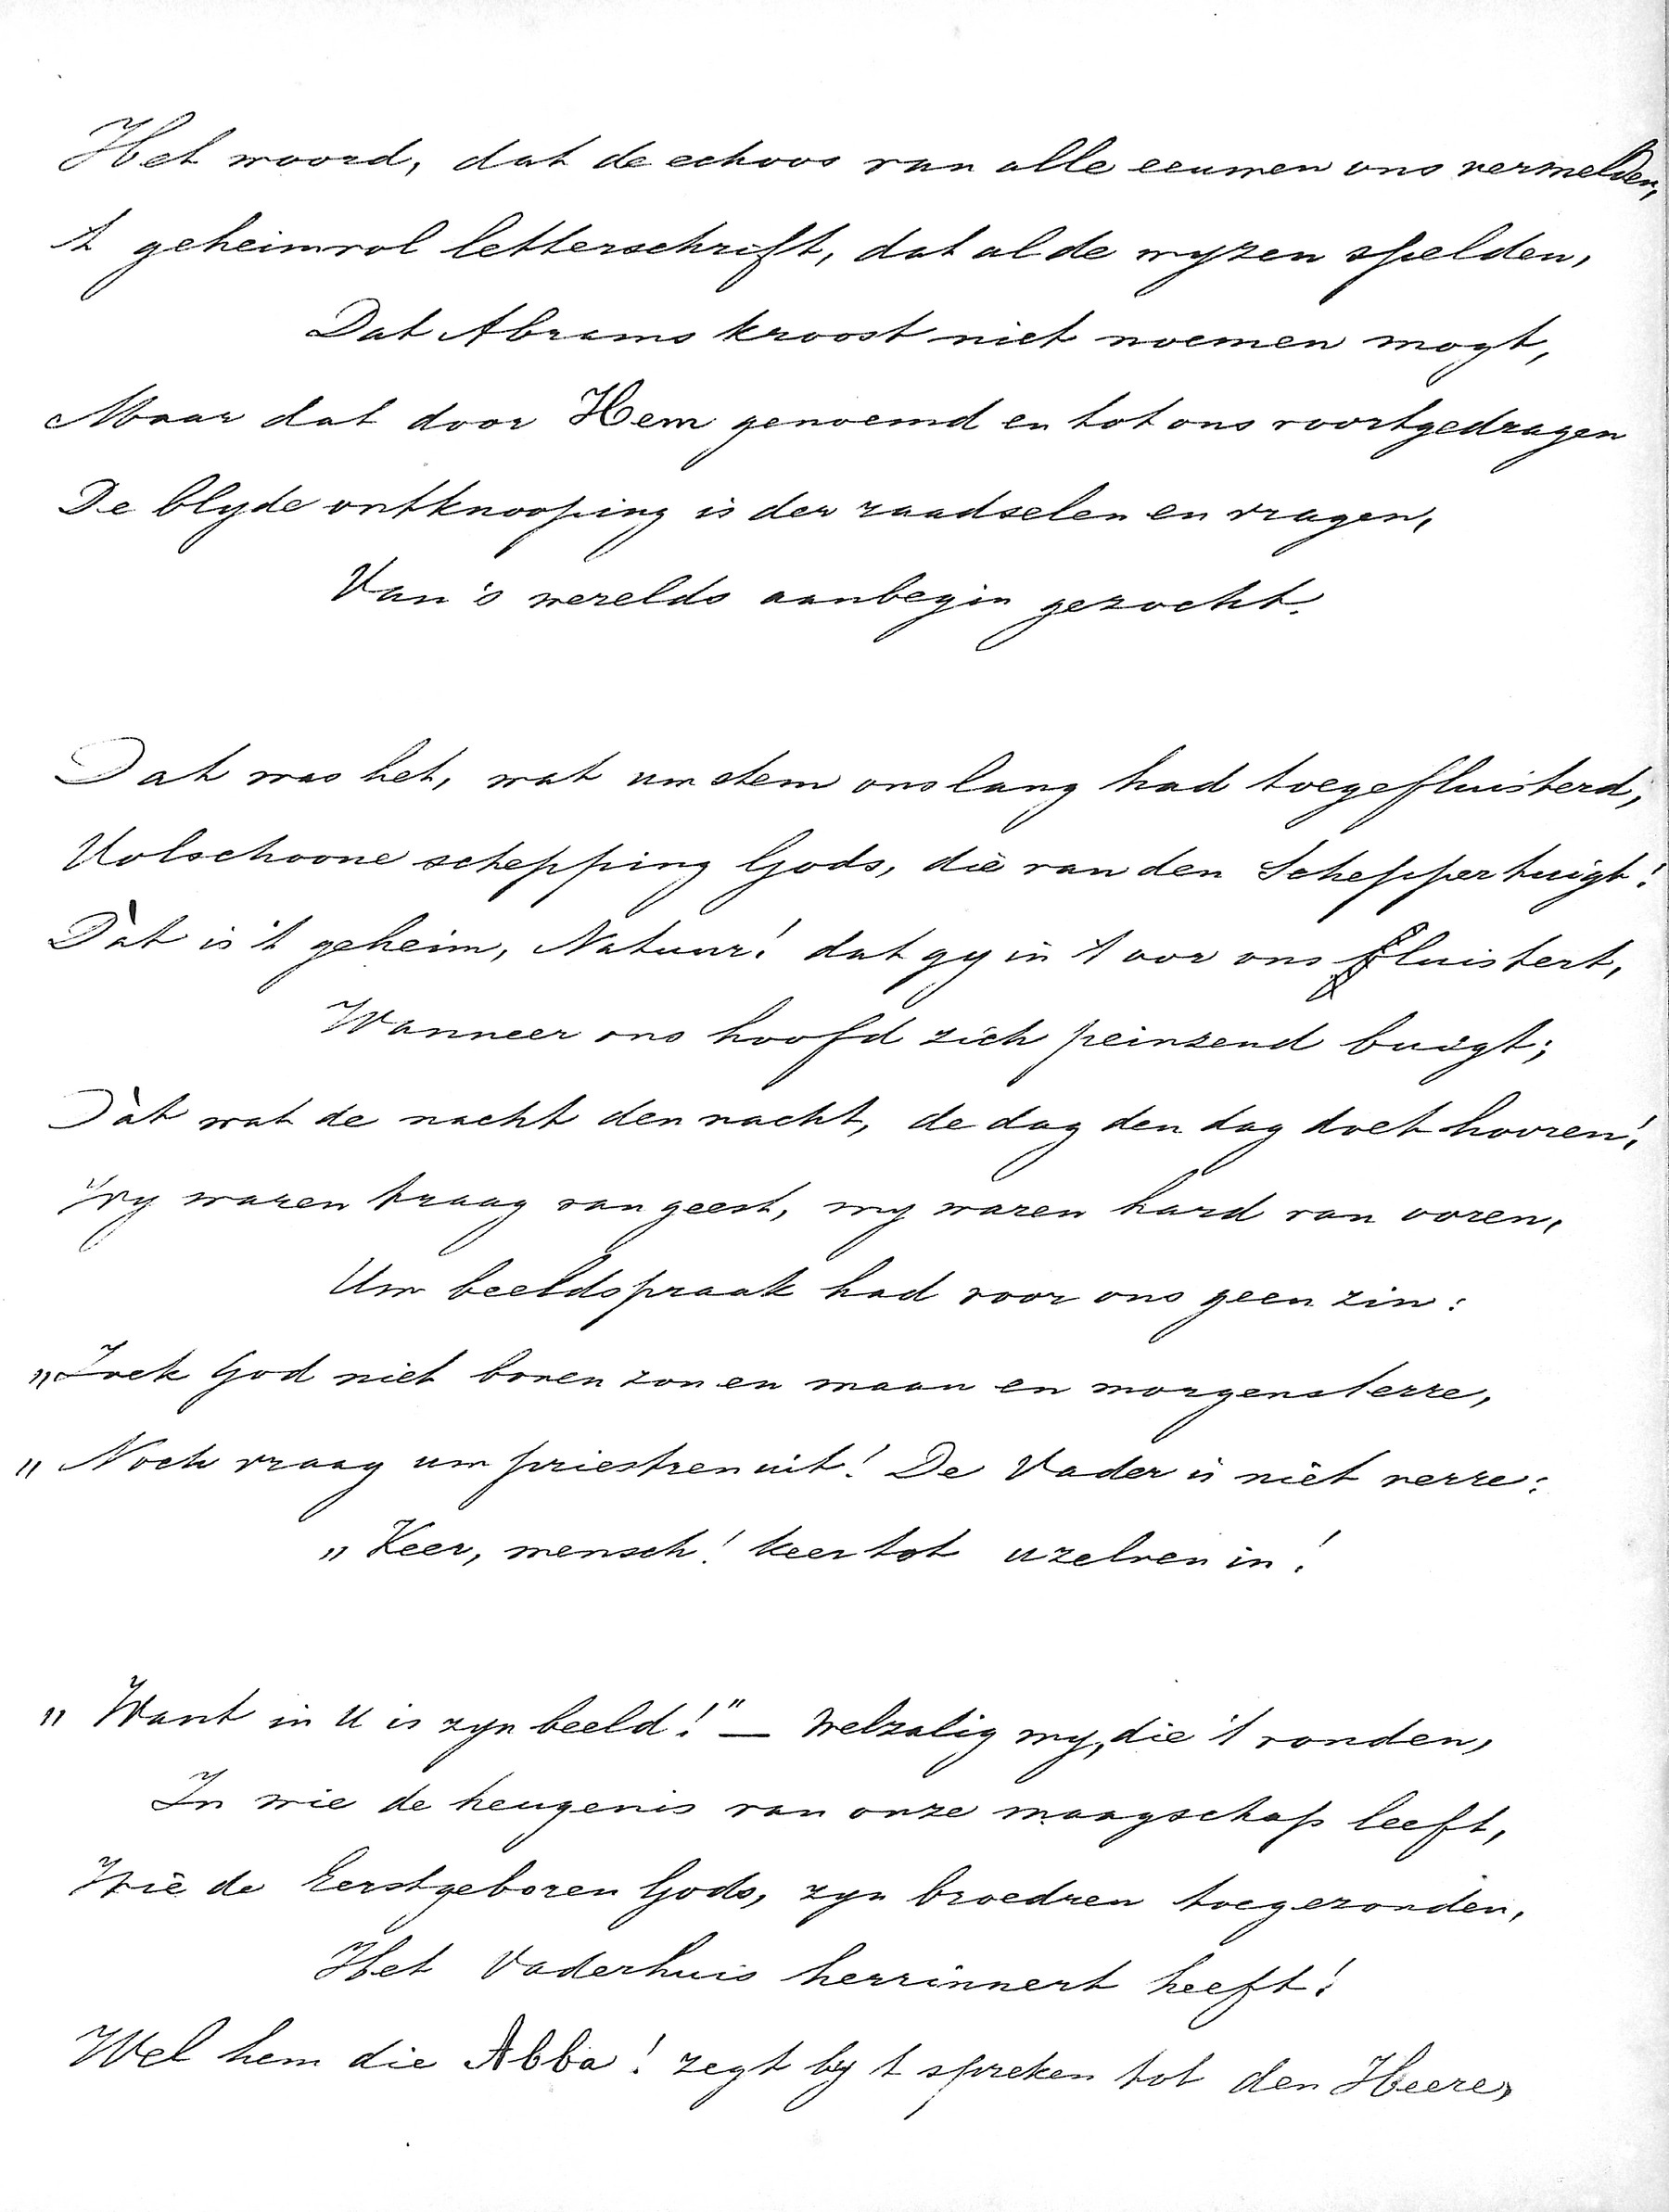 Het woord, dat de echoos van alle eeuwen ons vermelden,
't geheimvol letterschrift, dat al de wyzen spelden,
Dat Abrams kroost niet noemen mogt,
Maar dat door Hem genoemd en tot ons voortgedragen
De blyde ontknooping is der raadselen en vragen,
Van 's werelds aanbegin gezocht.
Dat was het, wat uw stem ons lang had toegefluisterd,
Volschoone schepping Gods, die van den Schepper tuigt!
Dàt is 't geheim, Natuur! dat gy in 't oor ons fluistert,
Wanneer ons hoofd zich peinzend buigt;
Dàt wat de nacht den nacht, de dag den dag doet hooren!
Wy waren traag van geest, wy waren hard van ooren,
Uw beeldspraak had voor ons geen zin:
„Zoek God niet boven zon en maan en morgensterre,
„Noch vraag uw priestren uit! De Vader is niet verre:
„Keer, mensch! keer tot uzelven in!
„Want in U is zyn beeld!" — Welzalig wy, die 't vonden,
In wie de heugenis van onze maagschap leeft,
Wie de Eerstgeboren Gods, zyn broedren toegezonden,
Het Vaderhuis herinnert heeft!
Wel hem die Abba! zegt by 't spreken tot den Heere,